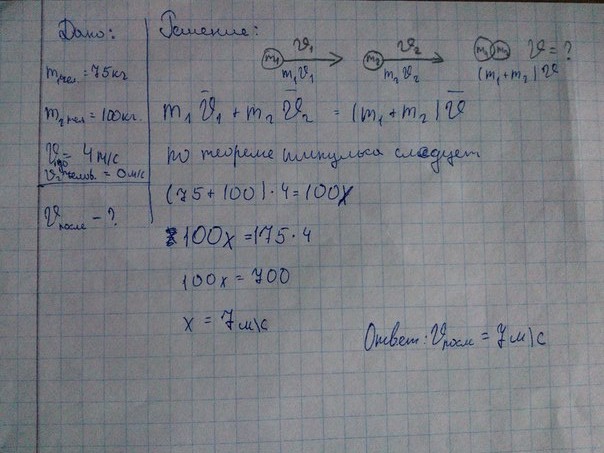 Дано:
m₁чел. = 75кг
m₂тел = 100кг.
= 4 м/с
= 0 м/с
ϑпосле – ?
Решение:
m₁ ϑ₁ m₁ϑ₁ m₂ ϑ₂ m₂ϑ₂ m₁ m₂ ϑ = ? (m₁+m₂)ϑ
m₁ϑ̄₁ + m₂ϑ̄₂ = (m₁+m₂)ϑ̄
по теореме импульса следует
(75+100)·4=100x
100x=175·4
100x=700
x = 7м\с
Ответ: ϑпосле = 7м\с